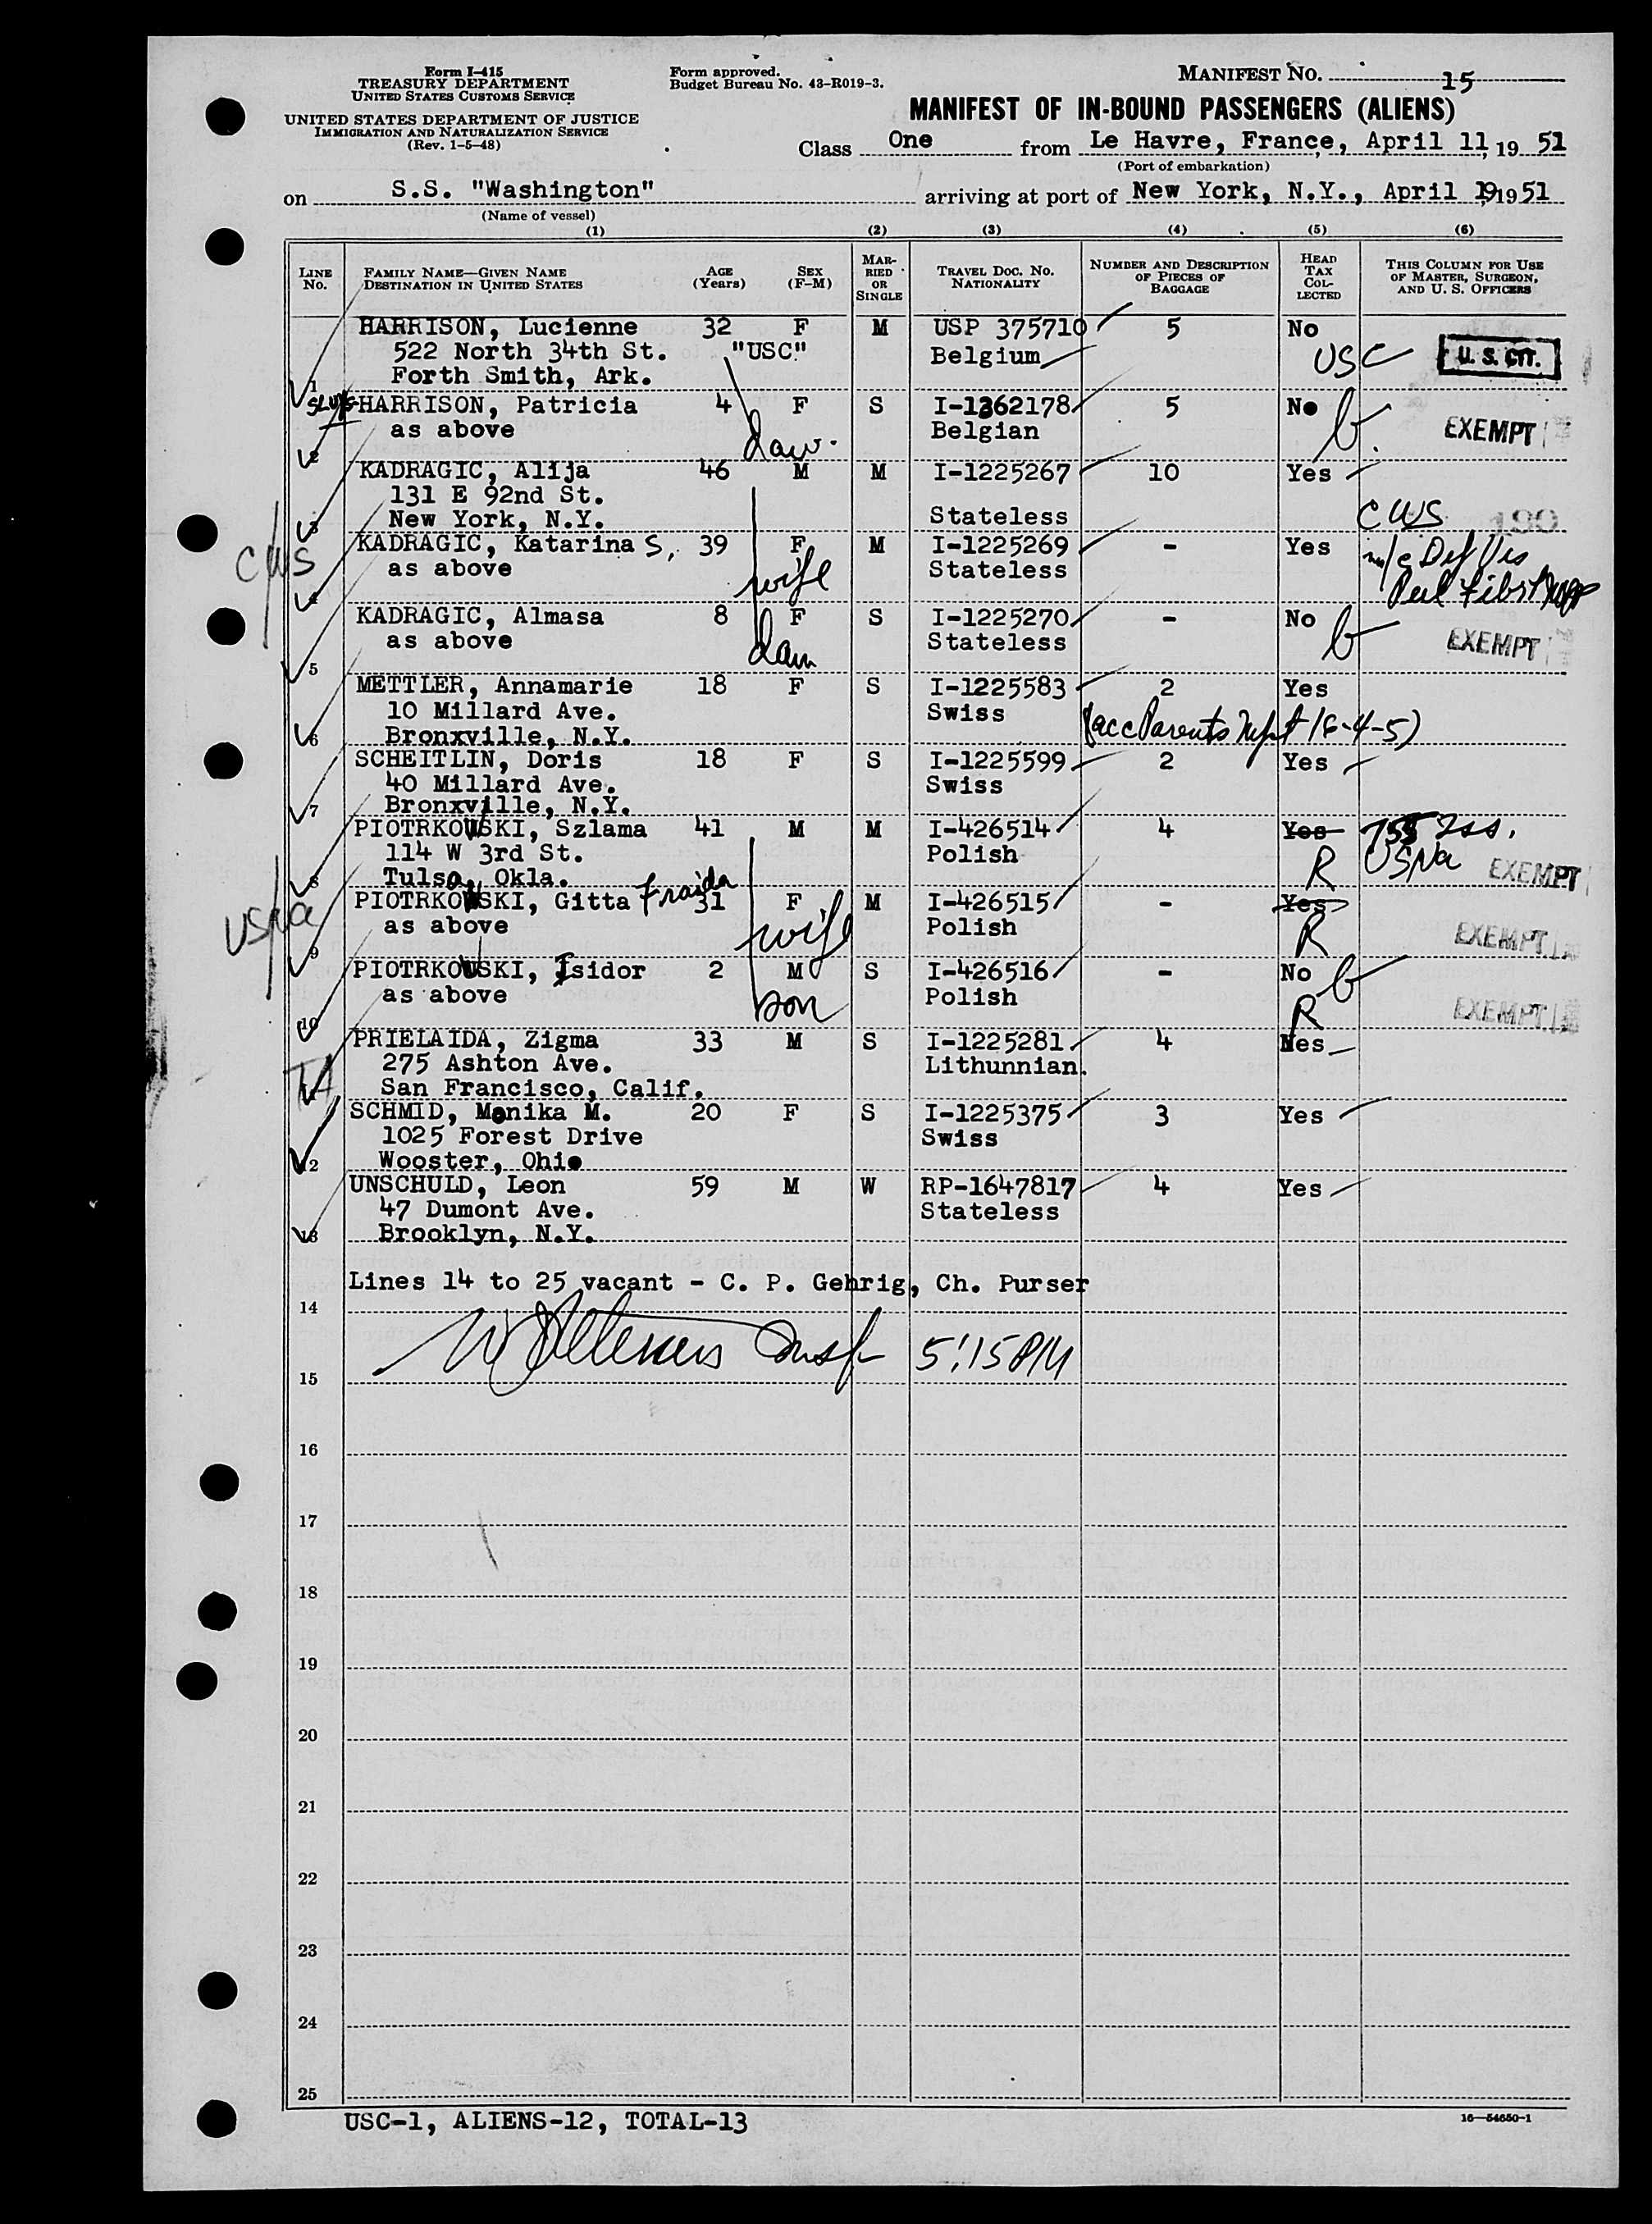 Form I-415
TREASURY DEPARTMENT
UNITED STATES CUSTOMS SERVICE
UNITED STATES DEPARTMENT OF JUSTICE
IMMIGRATION AND NATURALIZATION SERVICE
(Rev. 1-5-48)
Form approved.
Budget Bureau No. 43-R019-3.
MANIFEST NO. 15
MANIFEST OF IN-BOUND PASSENGERS (ALIENS)
Class One from Le Havre, France, April 11, 19 51
(Port of embarkation)
on S.S. "Washington" arriving at port of New York, N.Y., April 19, 1951
(Name of vessel)
(1) (2) (3) (4) (5) (6)
LINE NO. FAMILY NAME—GIVEN NAME DESTINATION IN UNITED STATES AGE (Years) SEX (F-M) MARRIED OR SINGLE TRAVEL DOC. NO. NATIONALITY NUMBER AND DESCRIPTION OF PIECES OF BAGGAGE HEAD TAX COLLECTED THIS COLUMN FOR USE OF MASTER, SURGEON, AND U. S. OFFICERS
HARRISON, Lucienne 32 F M USP 375710 5 No
522 North 34th St. "USC" Belgium USC U. S. CIT.
1 Forth Smith, Ark.
HARRISON, Patricia 4 F S I-1362178 5 No
2 as above dau. Belgian b. EXEMPT
KADRAGIC, Alija 46 M M I-1225267 10 Yes
131 E 92nd St.
3 New York, N.Y. Stateless CWS
KADRAGIC, Katarina S, 39 F M I-1225269 - Yes
CWS
4 as above wife Stateless
KADRAGIC, Almasa 8 F S I-1225270 - No
5 as above dau Stateless b EXEMPT
METTLER, Annamarie 18 F S I-1225583 2 Yes
10 Millard Ave. Swiss (acc Parents (6-4-5)
6 Bronxville, N.Y.
SCHEITLIN, Doris 18 F S I-1225599 2 Yes
40 Millard Ave. Swiss
7 Bronxville, N.Y.
PIOTRKOWSKI, Szlama 41 M M I-426514 4 Yes
114 W 3rd St. Polish R USNa EXEMPT
8 Tulsa, Okla.
PIOTRKOWSKI, Gitta Fraida 31 F M I-426515 - Yes
USNa
9 as above wife Polish R EXEMPT
PIOTRKOWSKI, Isidor 2 M S I-426516 - No b
10 as above son Polish R EXEMPT
PRIELAIDA, Zigma 33 M S I-1225281 4 Yes
275 Ashton Ave. Lithunnian
San Francisco, Calif.
SCHMID, Monika M. 20 F S I-1225375 3 Yes
1025 Forest Drive Swiss
12 Wooster, Ohio
UNSCHULD, Leon 59 M W RP-1647817 4 Yes
47 Dumont Ave. Stateless
13 Brooklyn, N.Y.
Lines 14 to 25 vacant - C. P. Gehrig, Ch. Purser
14
Insp 5:15 PM
15
16
17
18
19
20
21
22
23
24
25
USC-1, ALIENS-12, TOTAL-13
16—54650-1